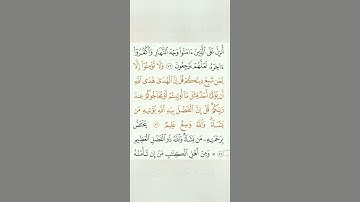 أُنزِلَ عَلَى ٱلَّذِينَ ءَامَنُوا۟ وَجْهَ ٱلنَّهَارِ وَٱكْفُرُوٓا۟
ءَاخِرَهُۥ لَعَلَّهُمْ يَرْجِعُونَ ٧٢ وَلَا تُؤْمِنُوٓا۟ إِلَّا
لِمَن تَبِعَ دِينَكُمْ قُلْ إِنَّ ٱلْهُدَىٰ هُدَى ٱللَّهِ
أَن يُؤْتَىٰٓ أَحَدٌ مِّثْلَ مَآ أُوتِيتُمْ أَوْ يُحَآجُّوكُمْ عِندَ
رَبِّكُمْ قُلْ إِنَّ ٱلْفَضْلَ بِيَدِ ٱللَّهِ يُؤْتِيهِ مَن
يَشَآءُ وَٱللَّهُ وَٰسِعٌ عَلِيمٌ ٧٣ يَخْتَصُّ
بِرَحْمَتِهِۦ مَن يَشَآءُ وَٱللَّهُ ذُو ٱلْفَضْلِ ٱلْعَظِيمِ
٧٤ ۞ وَمِنْ أَهْلِ ٱلْكِتَٰبِ مَنْ إِن تَأْمَنْهُ